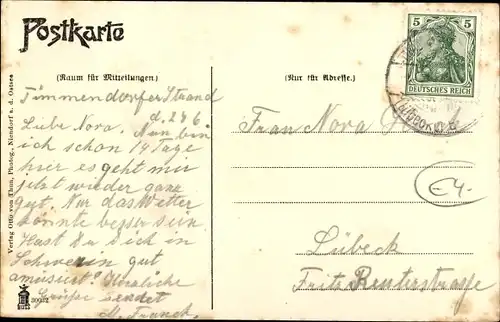 Postkarte
(Raum für Mitteilungen.)
(Nur für Adresse.)
5 5
DEUTSCHES REICH
Timmendorfer Strand
d. 24 6.
Liebe Nora. Nun bin
ich schon 14 Tage
hier es geht mir
jetzt wieder ganz
gut. Nur das Wetter
könnte besser sein.
Hast Du Dich in
Schwerin gut
amüsiert? Herzliche
Grüße sendet
M. Franck.
Frau Nora
Lübeck
Fritz Reuterstraße
E4.-
Verlag Otto von Thun, Photogr., Niendorf a. d. Ostsee